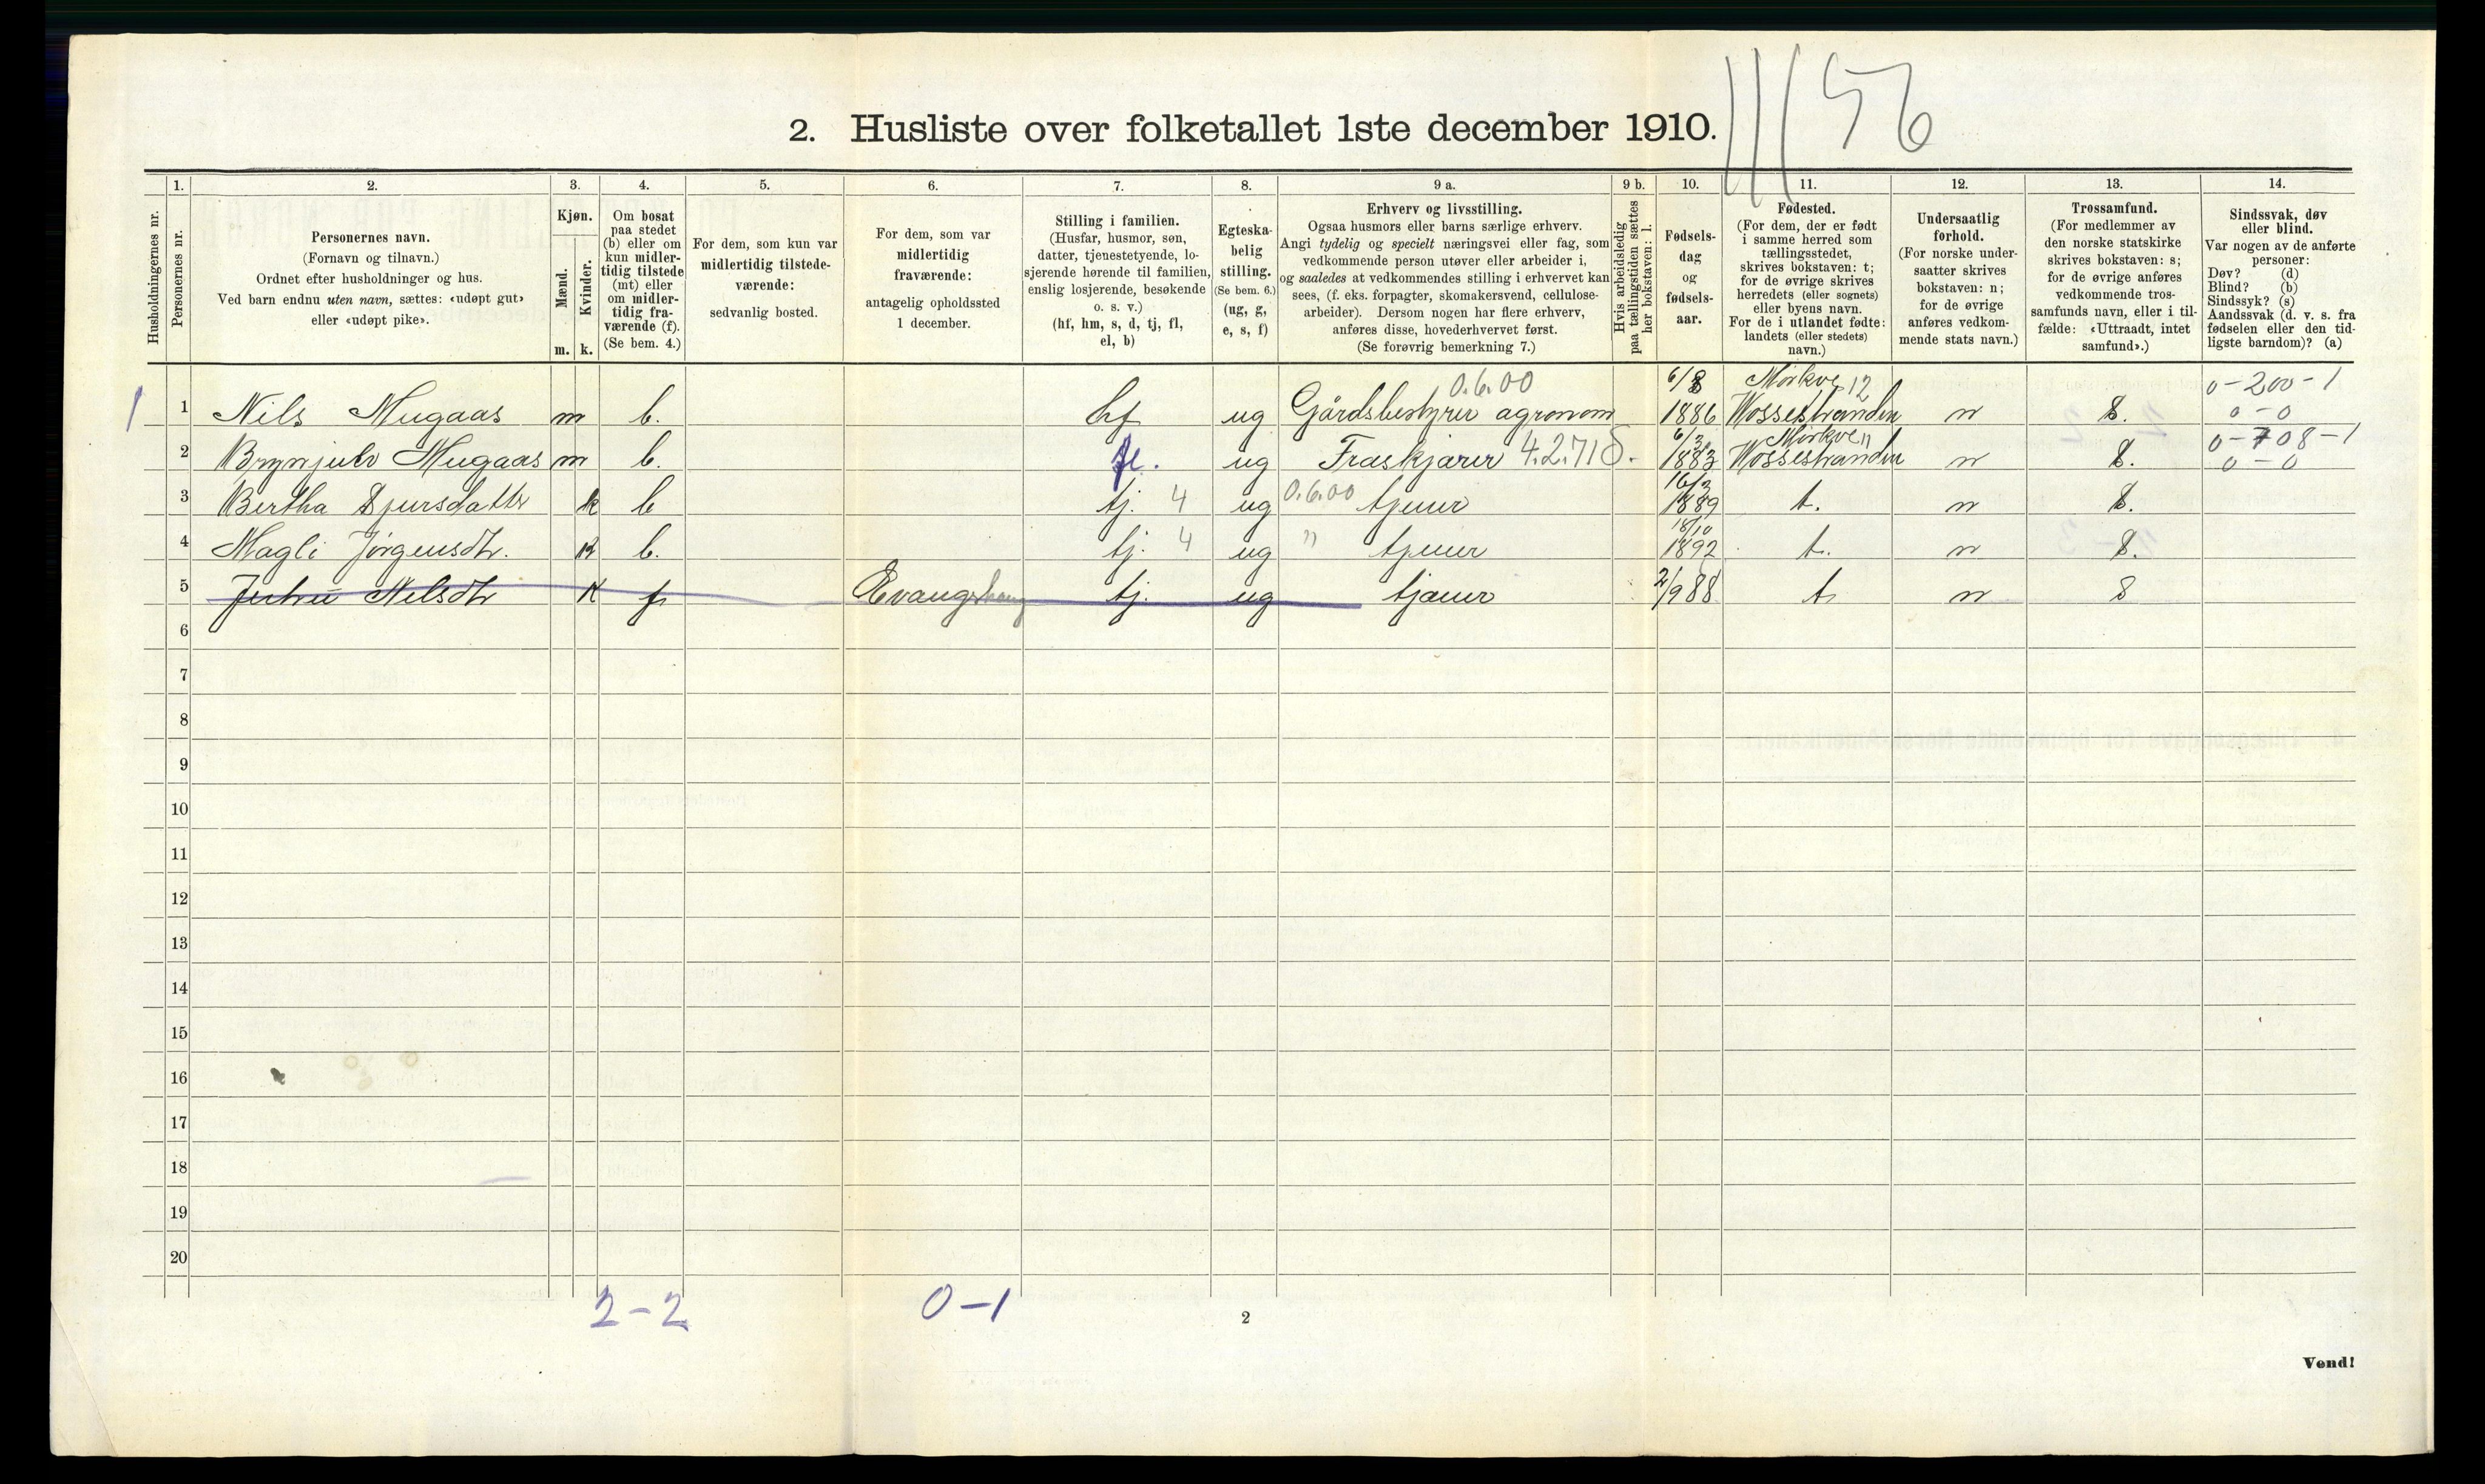 11/56
2. Husliste over folketallet 1ste december 1910.
1. 2. 3. 4. 5. 6. 7. 8. 9 a. 9 b. 10. 11. 12. 13. 14.
Husholdningernes nr.
Personernes nr.
Personernes navn.
(Fornavn og tilnavn.)
Ordnet efter husholdninger og hus.
Ved barn endnu uten navn, sættes: «udøpt gut»
eller «udøpt pike».
Kjøn.
Mænd.
Kvinder.
m. k.
Om bosat
paa stedet
(b) eller om
kun midler-
tidig tilstede
(mt) eller
om midler-
tidig fra-
værende (f).
(Se bem. 4.)
For dem, som kun var
midlertidig tilstede-
værende:
sedvanlig bosted.
For dem, som var
midlertidig
fraværende:
antagelig opholdssted
1 december.
Stilling i familien.
(Husfar, husmor, søn,
datter, tjenestetyende, lo-
sjerende hørende til familien,
enslig losjerende, besøkende
o. s. v.)
(hf, hm, s, d, tj, fl,
el, b)
Egteska-
belig
stilling.
(Se bem. 6.)
(ug, g,
e, s, f)
Erhverv og livsstilling.
Ogsaa husmors eller barns særlige erhverv.
Angi tydelig og specielt næringsvei eller fag, som
vedkommende person utøver eller arbeider i,
og saaledes at vedkommendes stilling i erhvervet kan
sees, (f. eks. forpagter, skomakersvend, cellulose-
arbeider). Dersom nogen har flere erhverv,
anføres disse, hovederhvervet først.
(Se forøvrig bemerkning 7.)
Hvis arbeidsledig
paa tællingstiden sættes
her bokstaven: l.
Fødsels-
dag
og
fødsels-
aar.
Fødested.
(For dem, der er født
i samme herred som
tællingsstedet,
skrives bokstaven: t;
for de øvrige skrives
herredets (eller sognets)
eller byens navn.
For de i utlandet fødte:
landets (eller stedets)
navn.)
Undersaatlig
forhold.
(For norske under-
saatter skrives
bokstaven: n;
for de øvrige
anføres vedkom-
mende stats navn.)
Trossamfund.
(For medlemmer av
den norske statskirke
skrives bokstaven: s;
for de øvrige anføres
vedkommende tros-
samfunds navn, eller i til-
fælde: «Uttraadt, intet
samfund».)
Sindssvak, døv
eller blind.
Var nogen av de anførte
personer:
Døv? (d)
Blind? (b)
Sindssyk? (s)
Aandssvak (d. v. s. fra
fødselen eller den tid-
ligste barndom)? (a)
0.6.00 6/8 Mørkve 12 0-200-1
1 1 Nils Mugaas m b. hf ug Gårdsbestyrer agronom 1886 Vossestranden n S. 0-0
6/3 Mørkve 11 0-708-1
2 Brynjulv Mugaas m b. fl. ug Fraskjærer 4.2.71 S. 1883 Vossestranden n S. 0-0
16/3
3 Bertha Sjursdattr k b tj. 4 ug 0.6.00 tjener 1889 t. n S.
18/10
4 Magli Jørgensdtr. k b. tj. 4 ug " tjener 1892 t. n S.
5 Nilsdtr k f Evangshaug tj. ug tjener 2/9 88 t. n S
6
7
8
9
10
11
12
13
14
15
16
17
18
19
20
2-2 0-1
2
Vend!